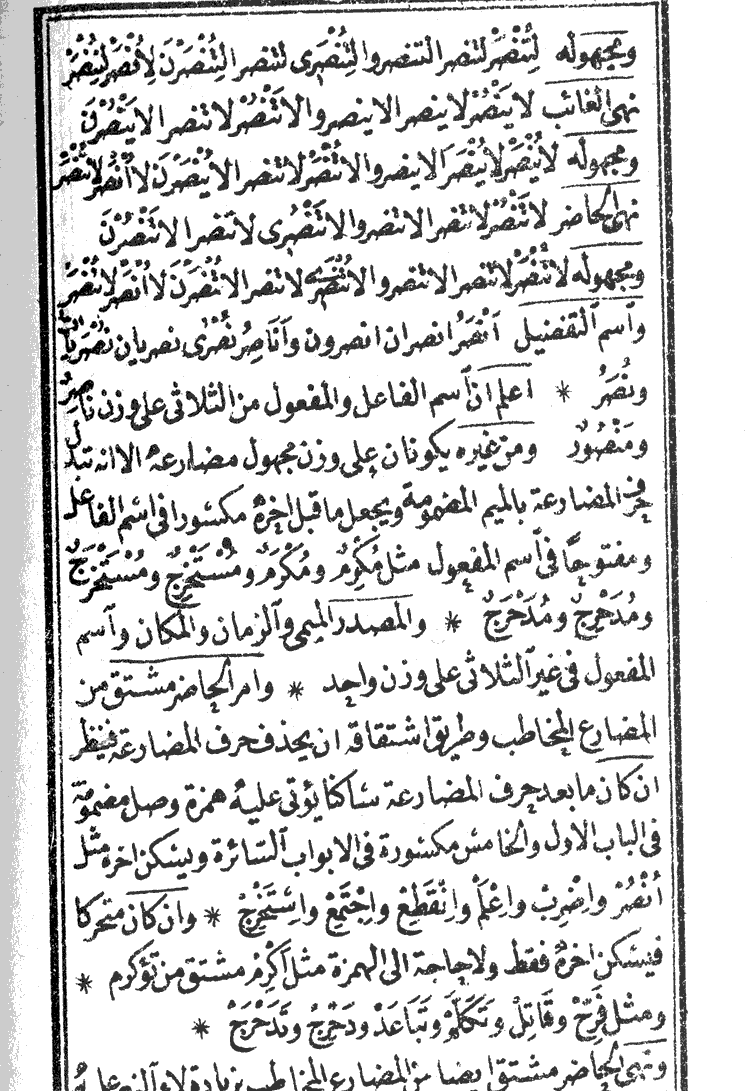 ومجهوله لِتُنْصَرْ لتنصرا لتنصروا لِتُنْصَرِى لتنصرا لِتُنْصَرْنَ لِأُنْصَرْ لِنُنْصَرْ
نهى الغائب لا يَنْصُرْ لا ينصرا لا ينصروا لا تَنْصُرْ لا تنصرا لا يَنْصُرْنَ
ومجهوله لا يُنْصَرْ لا يُنْصَرَا لا ينصروا لا تُنْصَرْ لا تنصرا لا يُنْصَرْنَ لا أُنْصَرْ لا نُنْصَرْ
نهى الحاضر لا تَنْصُرْ لا تنصرا لا تنصروا لا تَنْصُرِى لا تنصرا لا تَنْصُرْنَ
ومجهوله لا تُنْصَرْ لا تنصرا لا تنصروا لا تُنْصَرِى لا تنصرا لا تُنْصَرْنَ لا أُنْصَرْ لا نُنْصَرْ
واسم التفضيل أَنْصَرُ انصران انصرون وَأَنَاصِرُ نُصْرَى نصريان نُصْرَيَاتٌ
ونُصَرُ * اعلم ان اسم الفاعل والمفعول من الثلاثى على وزن ناصِرٌ
ومَنْصُورٌ ومن غيره يكونان على وزن مجهول مضارعه الا انه تبدل
حرف المضارعة بالميم المضمومة ويجعل ما قبل اخره مكسورا فى اسم الفاعل
ومفتوحًا فى اسم المفعول مثل مُكْرِمٌ ومُكْرَمٌ ومُسْتَخْرِجٌ ومُسْتَخْرَجٌ
ومُدَحْرِجٌ ومُدَحْرَجٌ * والمصدر الميمى والزمان والمكان واسم
المفعول فى غير الثلاثى على وزن واحد * وامر الحاضر مشتق من
المضارع المخاطب وطريق اشتقاقه ان يحذف حرف المضارعة فينظر
ان كان ما بعد حرف المضارعة ساكنا يؤتى عليه همزة وصل مضمومة
فى الباب الاول والخامس مكسورة فى الابواب السائرة ويسكن اخره مثل
أُنْصُرْ واِضْرِبْ واِعْلَمْ واِنْقَطِعْ واِجْتَمِعْ واِسْتَخْرِجْ * وان كان متحركا
فيسكن اخره فقط ولا حاجة الى الهمزة مثل أَكْرِمْ مشتق من تؤكرم *
ومثل فَرِّحْ وقَاتِلْ وتَكَلَّمْ وتَبَاعَدْ ودَحْرِجْ وتَدَحْرَجْ *
ونهى الحاضر مشتق ايضا من المضارع المخاطب بزيادة لا